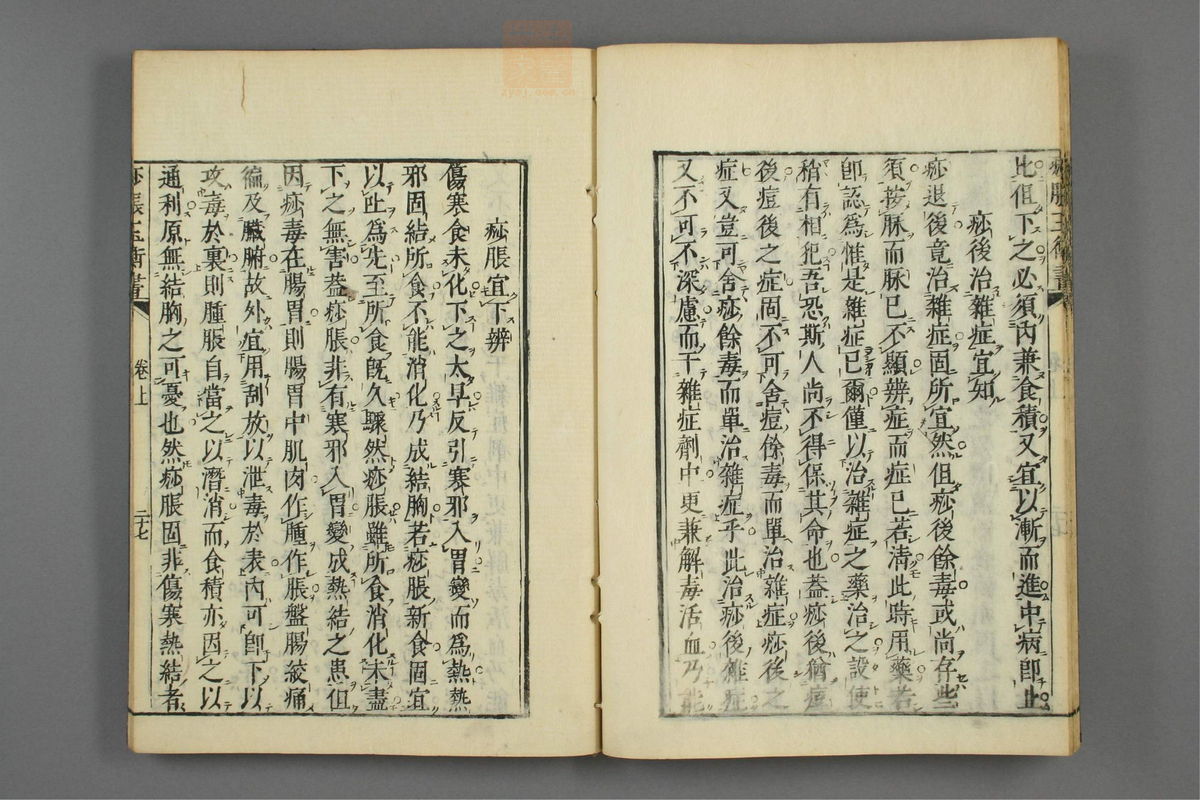 痧脹玉衡書
比但下之必須内兼食積又宜以漸而進中病即止
痧後治雜症宜知
痧退後竟治雜症固所宜然但痧後餘毒或尚存些
須按脉而脉已不顯辨症而症已若清此時用藥若
即認爲惟是雜症已爾僅以治雜症之藥治之設使
稍有相犯吾恐斯人尚不得保其命也葢痧後猶痘
後痘後之症固不可舍痘餘毒而單治雜症痧後之
症又豈可舍痧餘毒而單治雜症乎此治痧後雜症
又不可不深慮而于雜症劑中更兼解毒活血乃能
痧脹宜下辨
傷寒食未化下之太早反引寒邪入胃變而爲熱熱
邪固結所食不能消化乃成結胸若痧脹新食固宜
以吐爲先至所食旣久驟然痧脹雖所食消化未盡
下之無害葢痧脹非有寒邪入胃變成熱結之患但
因痧毒在腸胃則腸胃中肌肉作腫作脹盤腸絞痛
徧及臟腑故外宜用刮放以泄毒於表内可即下以
攻毒於裏則腫脹自當之以潛消而食積亦因之以
通利原無結胸之可憂也然痧脹固非傷寒熱結者
痧脹玉衡書
卷上
二十七